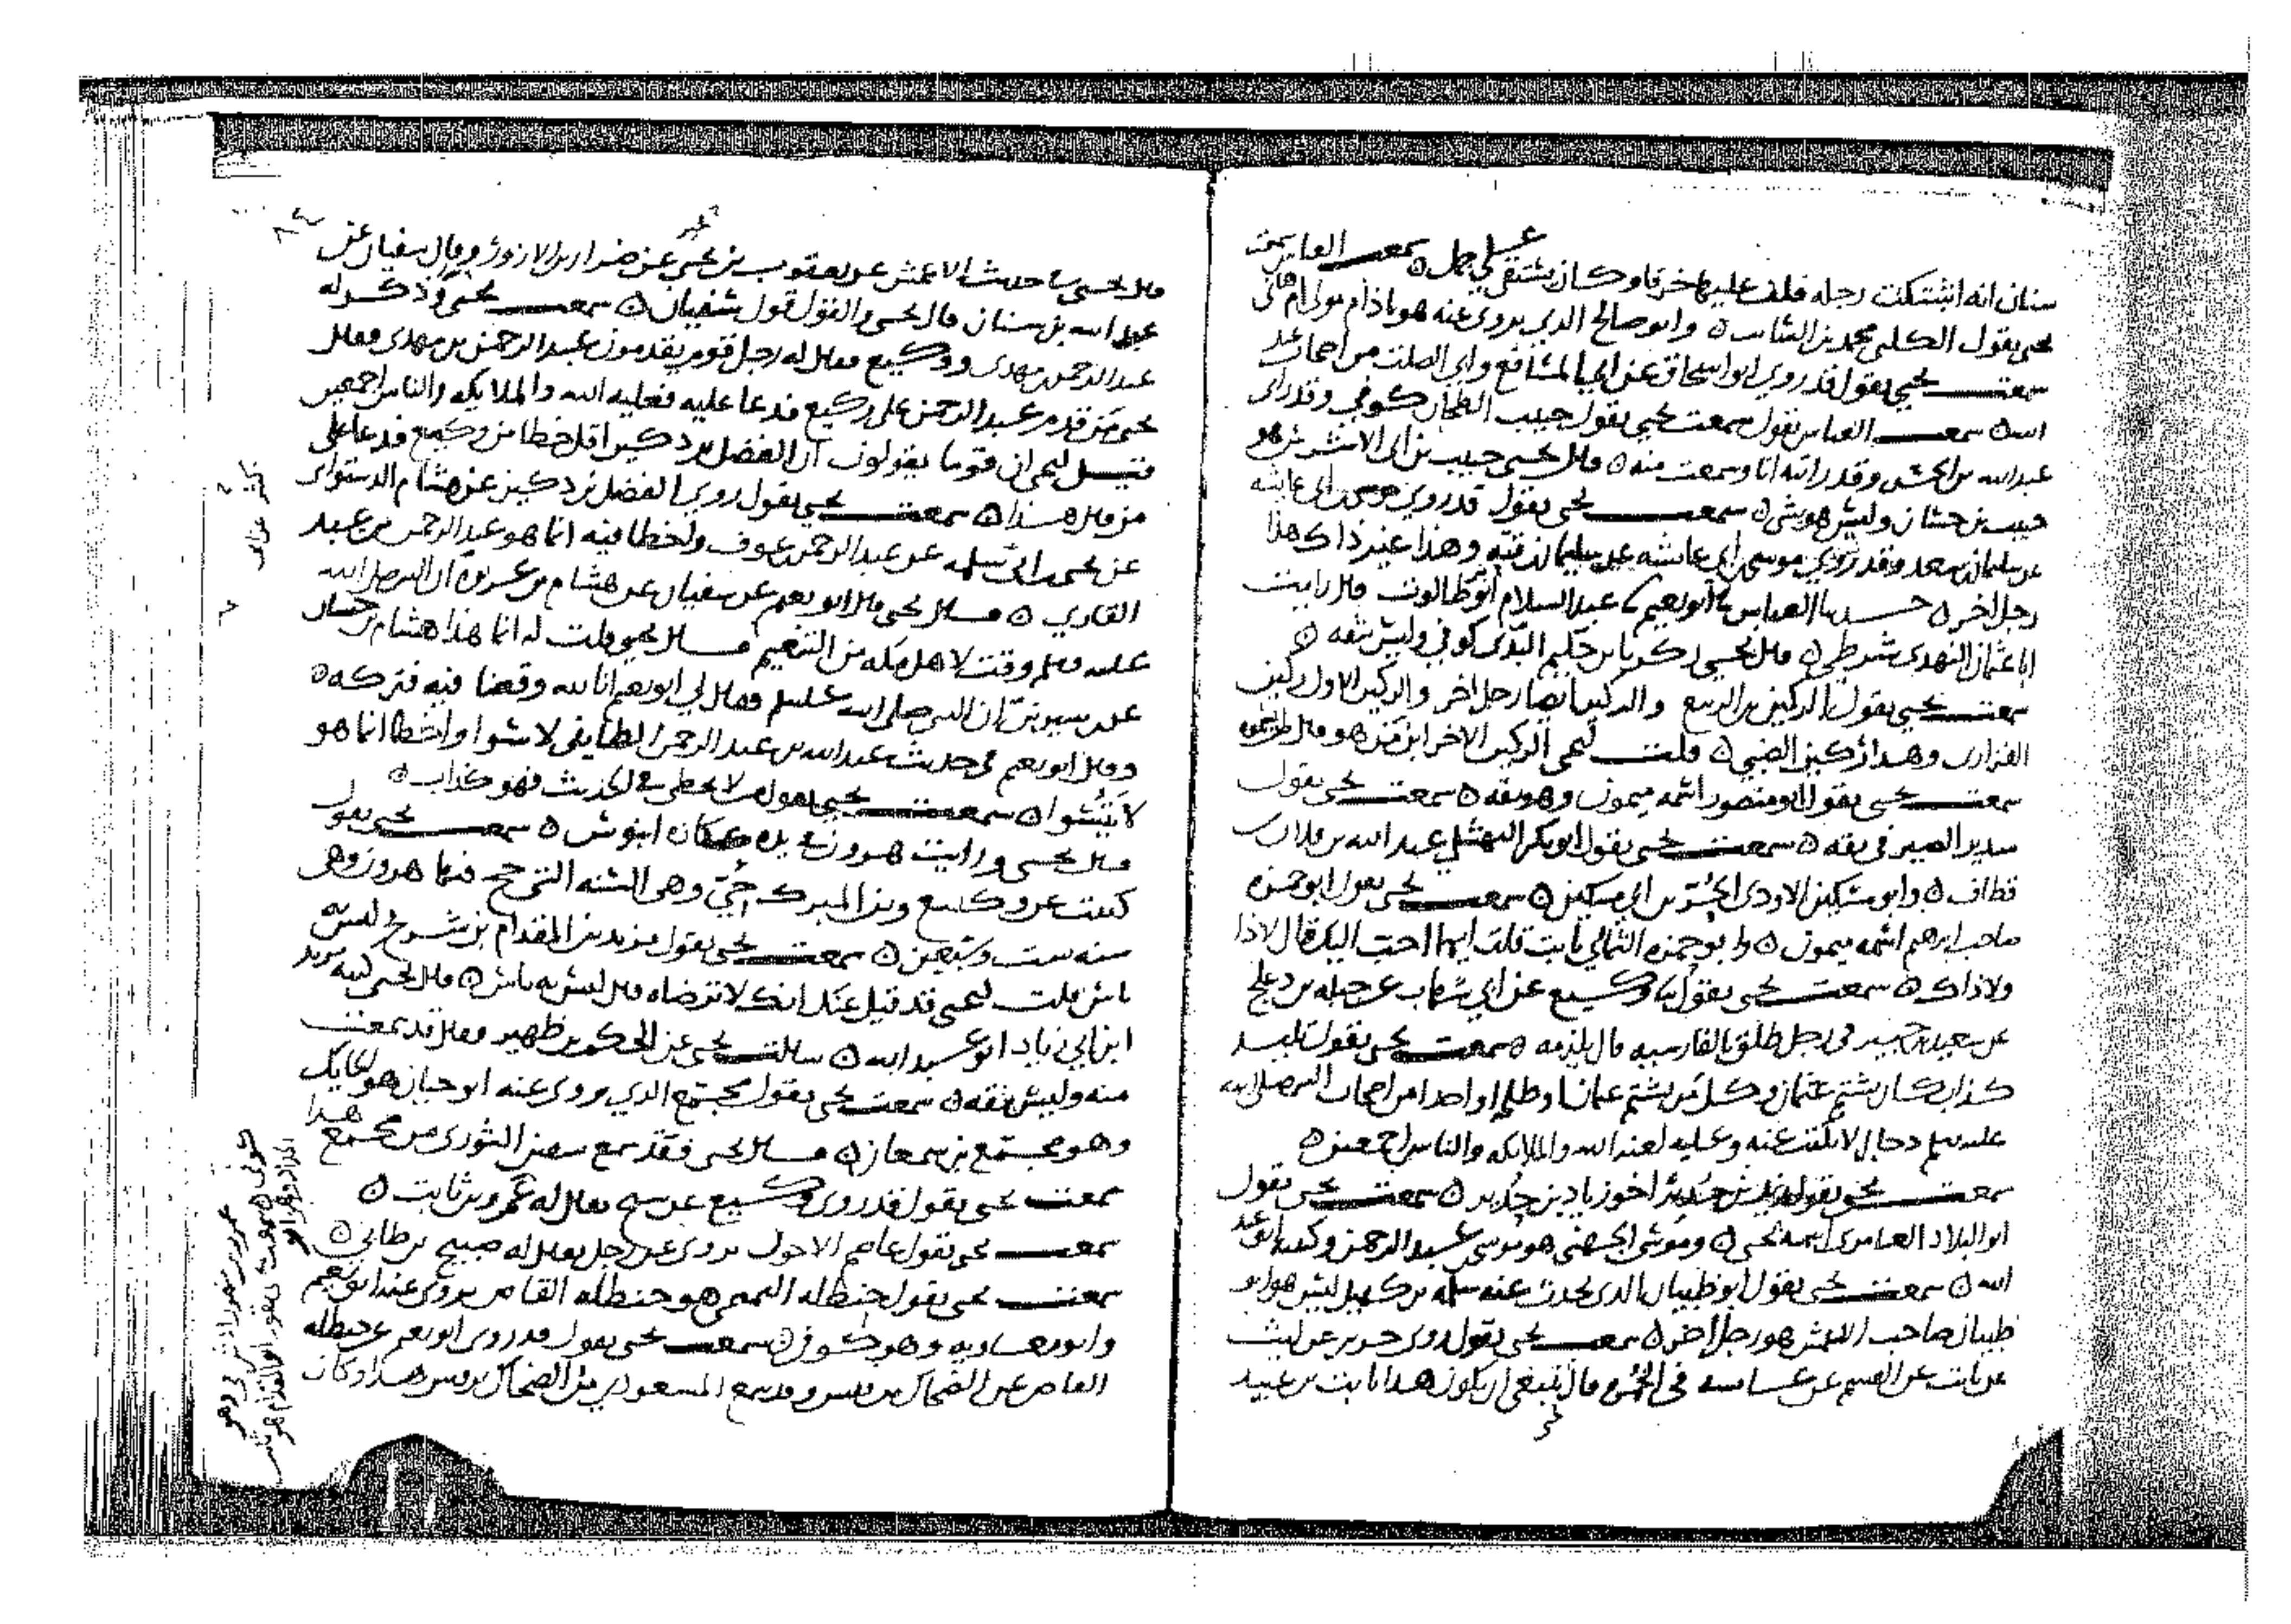 سنان انه اشتكت رجله فلف عليها خرقا وكان يستقي على جمل ه سمعت العباس سمعت
يحيى يقول الكلبي محمد بن السائب ه وابو صالح الذي يروي عنه هو باذام مولى ام هانى
سمعت يحيى يقول قد روى ابو اسحاق عن ابي المشافع وابي الصلت من اصحاب عبد
الله ه سمعت العباس يقول سمعت يحيى يقول حبيب الطحان كوفي وقد راى
عبد الله بن وقد راته انا وسمعت منه ه قال يحيى حبيب بن ابي الاشرس هو
حبيب بن حسان وليس هو بشي ه سمعت يحيى يقول قد روى موسى بن ابي عايشه
عن سليمان بن سعد وقد روى موسى بن ابي عايشه عن سليمان بن قته وهذا غير ذاك هذا
رجل اخر ه حدثنا العباس نا ابو نعيم نا عبد السلام ابو طالوت قال رايت
ابا عثمان النهدي شرطي ه قال يحيى زكريا بن حكيم البدي كوفي وليس ثقه ه
سمعت يحيى يقول الركين بن الربيع والركين ايضا رجل اخر والركين الاول ركين
الفزاري وهذا ركين الضبي ه قلت ليحيى الركين الاخر ابن من هو قال
سمعت يحيى يقول ابو منصور اسمه ميمون وهو ثقه ه سمعت يحيى يقول
سدير الصيرفي ثقه ه سمعت يحيى يقول ابو بكر النهشلي عبد الله بن فلان بن
قطاف ه وابو مسكين الاودي الحر بن مسكين ه سمعت يحيى يقول ابو حمزه
صاحب ابرهيم اسمه ميمون ه وابو حمزه الثمالي ثابت قلت ايهما احب اليك قال لا ذا
ولا ذاك ه سمعت يحيى يقول نا وكيع عن ابي شهاب عن جبله بن دعلج
عن سعيد بن جبير في رجل طلق بالفارسيه قال يلزمه ه سمعت يحيى يقول تليد
كذاب كان يشتم عثمان وكل من يشتم عثمان او طلحه او احدا من اصحاب النبي صلى الله
عليه وسلم دجال لا يكتب عنه وعليه لعنة الله والملايكه والناس اجمعين ه
سمعت يحيى يقول بن حدير اخو زياد بن حدير ه سمعت يحيى يقول
ابو البلاد العامري اسمه يحيى ه وموسى الجهني هو موسى بن عبد الرحمن وكنيته ابو عبد
الله ه سمعت يحيى يقول ابو ظبيان الذي يحدث عنه سلمه بن كهيل ليس هو ابو
ظبيان صاحب الاعمش هو رجل اخر ه سمعت يحيى يقول روى جرير عن ليث
عن ثابت عن القسم عن في قال ينبغي ان يكون هذا ثابت بن عبيد
قال يحيى نا حديث الاعمش عن يعقوب بن بحير عن ضرار بن الازور وقال سفيان عن
عبد الله بن سنان قال يحيى والقول قول سفيان ه سمعت يحيى وذكر له
عبد الرحمن بن مهدي ووكيع فقال له رجل قوم يقدمون عبد الرحمن بن مهدي فقال
يحيى من قدم عبد الرحمن على وكيع فدعا عليه فعليه لعنه الله والملايكه والناس اجمعين
قيل ليحيى ان قوما يقولون ان الفضل بن دكين اقل خطا من وكيع فدعا على
من قال هذا ه سمعت يحيى يقول روى الفضل بن دكين عن هشام الدستوائي
عن يحيى بن ابي سلمه عن عبد الرحمن بن عوف واخطا فيه انما هو عبد الرحمن بن عبد
القاري ه قال يحيى قال ابو نعيم عن سفيان عن هشام بن عن ان النبي صلى الله
عليه وسلم وقت لاهل مكه من التنعيم قال يحيى فقلت له انما هذا هشام بن حسان
عن بن سيرين ان النبي صلى الله عليه وسلم فقال لي ابو نعيم انا لله وقعنا فيه فتركه ه
وقال ابو نعيم في حديث عبد الله بن عبد الرحمن الطايفي لا واخطا انما هو
لا ه سمعت يحيى يقول من لا يخطي في الحديث فهو كذاب ه
قال يحيى ورايت هرون في يده عكاز ابنوس ه سمعت يحيى يقول
كتبت عن وكيع وبن المبرك حي وهي السنه التي حج فيها هرون وهي
سنه ست وسبعين ه سمعت يحيى يقول يزيد بن المقدام بن شريح ليس به
باس قلت ليحيى قد قيل عنك انك لا ترضاه قال ليس به باس ه قال يحيى كنيه يزيد
ابن ابي زياد ابو عبد الله ه سالت يحيى عن الحكم بن ظهير فقال قد سمعت
منه وليس بثقه ه سمعت يحيى يقول مجتمع الذي يروي عنه ابو حيان هو الحايك
وهو مجتمع بن سمعان ه قال يحيى فقد سمع سفين الثوري من مجمع هذا
سمعت يحيى يقول قد روى وكيع عن شيخ يقال له عمرو بن ثابت ه
سمعت يحيى يقول عاصم الاحول يروي عن رجل يقال له صبيح بن
سمعت يحيى يقول حنظله التميمي هو حنظله القاص يروي عنه ابو نعيم
وابو معاويه وهو كوفي ه سمعت يحيى يقول قد روى ابو نعيم عن حنظله
القاص عن الضحاك بن قيس وقد سمع المسعودي من الضحاك بن قيس هذا وكان